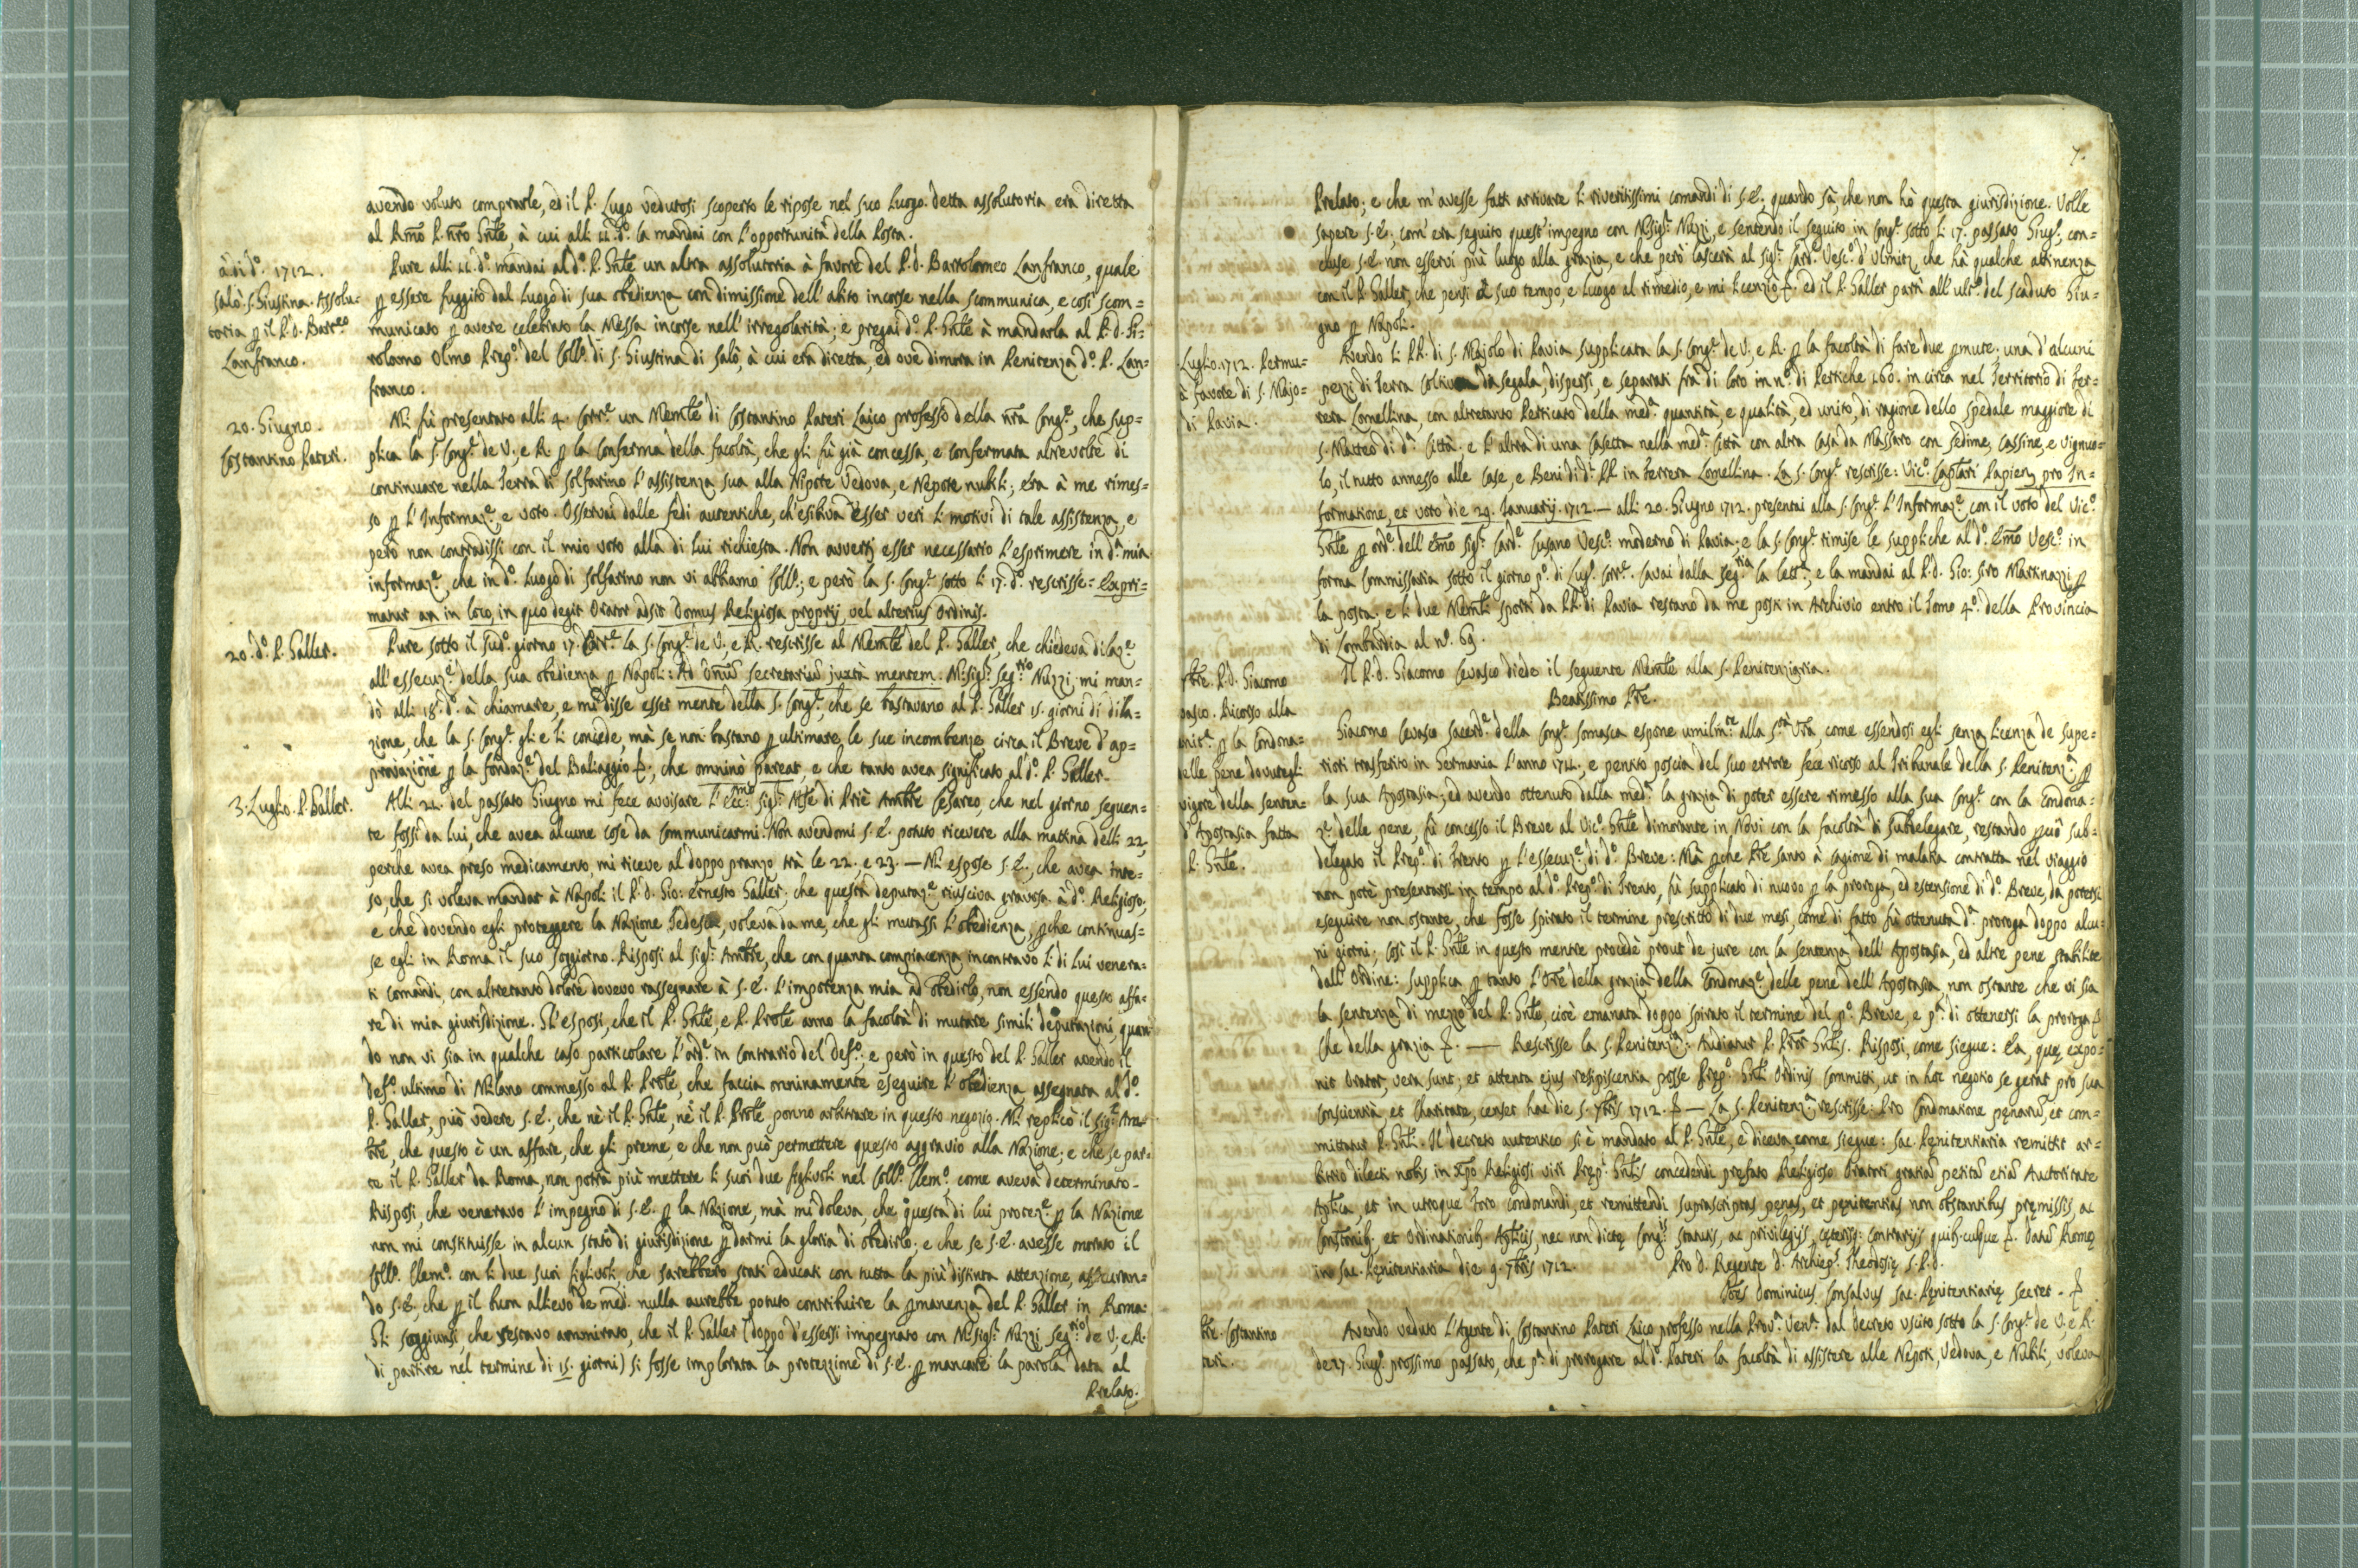 avendo voluto comprarle, ed il P. Lugo vedutosi scoperto le ripose nel suo luogo. detta assolutoria era diretta
al Rmo P. nro Gnle, à cui alli 11. do. la mandai con l'opportunità della Posta.
à di do. 1712.
Salò. S. Giustina. Assolu=
toria p il P. D. Barteo
Lanfranco.
Pure alli 11. do. mandai al do. P. Gnle un altra assolutoria à favore del P. D. Bartolomeo Lanfranco, quale
p essere fuggito dal luogo di sua obedienza con dimissione dell'abito incorse nella scommunica, e così scom=
municato p avere celebrato la Messa incorse nell'irregolarità; e pregai do. P. Gnle à mandarla al P. D. Gi=
rolamo Olmo Prepo. del Collo. di S. Giustina di Salò, à cui era diretta, ed ove dimora in Penitenza do. P. Lan=
franco.
20. Giugno.
Costantino Pateri.
Mi fù presentato alli 4. Corre. un Memle di Costantino Pateri Laico professo della nra Conge., che sup=
plica la S. Conge. de V. e R. p la Conferma della facoltà, che gli fù già concessa, e confermata altrevolte di
continuare nella Terra di Solfarino l'assistenza sua alla Nipote Vedova, e Nepote nubili; era à me rimes=
so p l'Informaze. e voto. Osservai dalle fedi autentiche, ch'esibiva esser veri li motivi di tale assistenza, e
però non contradissi con il mio voto alla di lui richiesta. Non avvertij esser necessario l'esprimere in da. mia
informaze., che in do. luogo di Solfarino non vi abbiamo Collo.; e però la S. Conge. sotto li 17. do. rescrisse = Expri=
matur an in loco, in quo degit Orator adsit Domus Religiosa proprij, vel alterius Ordinis.
20. do. P. Galler.
Pure sotto il sudo. giorno 17. Corre. la S. Conge. de V., e R. rescrisse al Memle del P. Galler, che chiedeva dilaze.
all'essecuze. della sua obedienza p Napoli: Ad Dnum Secretarium juxta mentem. Monsigr. Segrio Nuzzi mi man=
dò alli 18. do. à chiamare, e mi disse esser mente della S. Conge., che se bastavano al P. Galler 15. giorni di dila=
zione, che la S. Conge. gli e li concede, mà se non bastano p ultimare le sue incombenze circa il Breve d'ap=
provazione p la fondaze. del Baliaggio &., che omninò pareat, e che tanto avea significato al do. P. Galler.
3. Luglio. P. Galler.
Alli 21. del passato Giugno mi fece avvisare l'Eccmo sigr. Mse di Priè Ambre Cesareo, che nel giorno seguen=
te fossi da lui, che avea alcune cose da communicarmi. Non avendomi S. E. potuto ricevere alla mattina delli 22,
perche avea preso medicamento, mi riceve al doppo pranzo trà le 22. e 23. — Mi espose S. E., che avea inte=
so, che si voleva mandar à Napoli il P. D. Gio: Ernesto Galler; che questa deputaze. riusciva gravosa à do. Religioso,
e che dovendo egli proteggere la Nazione Tedesca, voleva da me, che gli mutassi l'obedienza, pche continuas=
se egli in Roma il suo soggiorno. Risposi al sigr. Ambre, che con quanta compiacenza incontravo li di lui venera=
ti comandi, con altretanto dolore dovevo rassegnare à S. E. l'impotenza mia ad obedirlo, non essendo questo affa=
re di mia giurisdizione. Gl'esposi, che il P. Gnle, e P. Prole anno la facoltà di mutare simili deputazioni, quan=
do non vi sia in qualche caso particolare l'orde. in contrario del Defo.; e però in questo del P. Galler avendo il
Defo. ultimo di Milano commesso al P. Prole, che faccia omninamente eseguire l'obedienza assegnata al do.
P. Galler, può vedere S. E., che nè il P. Gnle, nè il P. Prole ponno arbitrare in questo negozio. Mi replicò il sigr. Am=
bre, che questo è un affare, che gli preme, e che non può permettere questo aggravio alla Nazione; e che se par=
te il P. Galler da Roma, non potrà più mettere li suoi due figlivoli nel Collo. Clemo. come aveva determinato.
Risposi, che veneravo l'impegno di S. E. p la Nazione, mà mi doleva, che questa di lui proteze. p la Nazione
non mi constituisse in alcun stato di giurisdizione p darmi la gloria di obedirlo; e che se S. E. avesse onorato il
Collo. Clemo. con li due suoi figlivoli, che sarebbero stati educati con tutta la più distinta attenzione, assicuran=
do S. E., che p il buon allievo de med. nulla aurebbe potuto contribuire la pmanenza del P. Galler in Roma.
Gli soggiunsi, che restavo ammirato, che il P. Galler (doppo d'essersi impegnato con Monsigr. Nuzzi Segrio de V., e R.
di partire nel termine di 15. giorni) si fosse implorata la protezzione di S. E. p mancare la parola data al
Prelato.
7.
Prelato; e che m'avesse fatti arrivare li riveritissimi comandi di S. E., quando sà, che non hò questa giurisdizione. Volle
sapere S. E., com'era seguito quest'impegno con Monsigr. Nuzzi, e sentendo il seguito in Conge. sotto li 17. passato Giugo., con=
cluse S. E. non esservi più luogo alla grazia, e che però lascerà al sigr. Card. Vesco. d'Ulmitz, che hà qualche attinenza
con il P. Galler, che pensi à suo tempo, e luogo al rimedio, e mi licenziò &. ed il P. Galler partì all'ulto. del scaduto Giu=
gno p Napoli.
Luglio. 1712. Permu=
à favore di S. Majo=
di Pavia.
Avendo li PP. di S. Majolo di Pavia supplicata la S. Conge. de V., e R. p la facoltà di fare due pmute; una d'alcuni
pezzi di terra coltiva da segala, dispersi, e separati frà di loro in no. di Pertiche 160. in circa nel Territorio di Fer=
rera Lomellina, con altretanto Perticato della meda. quantità, e qualità, ed unito, di ragione dello Spedale maggiore di
S. Matteo di da. Città; e l'altra di una Casetta nella meda. Città con altra Casa da Massaro con sedime, Cassine, e vignuo=
lo, il tutto annesso alle Case, e Beni di di. PP. in Ferrera Lomellina. La S. Conge. rescrisse: Vico. Caplari Papien. pro In=
formatione, et voto die 29. Januarij. 1712. — alli 20. Giugno 1712. presentai alla S. Conge. l'Informaze. con il voto del Vico.
Gnle p orde. dell'Emo sigr. Carde. Cusano Vesco. moderno di Pavia; e la S. Conge. rimise le suppliche al do. Emo Vesco. in
forma Commissaria sotto il giorno po. di Lugo. corre. Cavai dalla Segria la lettra. e la mandai al P. D. Gio: Siro Martinazzi p
la posta; e li due Memli sporti da PP. di Pavia restano da me posti in Archivio entro il Tomo 4o. della Provincia
di Lombardia al no. 69.
7bre. P. D. Giacomo
vasco. Ricorso alla
nitra. p la Condona=
delle pene dovutegli
vigore della senten=
d'Apostasia fatta
P. Gnle.
Il P. D. Giacomo Cevasco diede il seguente Memle alla S. Penitenziaria.
Beatissimo Pre.
Giacomo Cevasco Sacerde. della Conge. Somasca espone umilmte. alla Stà Vrà, come essendosi egli senza licenza de Supe=
riori trasferito in Germania l'anno 1711., e pentito poscia del suo errore fece ricorso al Tribunale della S. Penitenza. p
la sua Apostasia; ed avendo ottenuto dalla meda. la grazia di poter essere rimesso alla sua Conge. con la Condona=
ze. delle pene, fù concesso il Breve al Vico. Gnle dimorante in Novi con la facoltà di subdelegare, restando pciò sub=
delegato il Prepo. di Trento p l'essecuze. di do. Breve: Mà pche l'Ore stanto à cagione di malatia contratta nel viaggio
non potè presentarsi in tempo al do. Prepo. di Trento, fù supplicato di nuovo p la proroga, ed estensione di do. Breve, da potersi
eseguire non ostante, che fosse spirato il termine prescritto di due mesi, come di fatto fù ottenuta da. proroga doppo alcu=
ni giorni; così il P. Gnle in questo mentre procedè prout de jure con la sentenza dell'Apostasia, ed altre pene stabilite
dall'Ordine: Supplica p tanto l'Ore della grazia della Condonaze. delle pene dell'Apostasia, non ostante che vi sia
la sentenza di mezzo del P. Gnle, cioè emanata doppo spirato il termine del po. Breve, e pa. di ottenersi la proroga &
Che della grazia &. — Rescrisse la S. Penitenza.: Audiatur P. Pror Gnlis. Risposi, come siegue: Ea, quę expo=
nit Orator, vera sunt; et attenta ejus resipiscentia posse Prepo. Gnli Ordinis committi, ut in hoc negotio se gerat pro sua
conscientia et charitate, censet hac die 5. 7bris 1712. & — La S. Penitenza. rescrisse: Pro Condonatione pęnarum, et com=
mittatur P. Gnli. Il decreto autentico si è mandato al P. Gnle, e diceva come siegue: Sac. Pęnitentiaria remittit ar=
bitrio dilecti nobis in Xpo Religiosi viri Prepi. Gnlis concedendi prefato Religioso Oratori gratiam petitam etiam Auctoritate
Aplica, et in utroque foro condonandi, et remittendi suprascriptas pęnas, et pęnitentias non obstantibus pręmissis, ac
Constonib. et Ordinationib. Aplicis, nec non dictę Congis. statutis, ac privilegijs, cęterisq. contrarijs quib.cuque &. Datum Romę
in Sac. Pęnitentiaria die 9. 7bris 1712. Pro D. Regente D. Archiepo. Theodosię S. P. D.
Joes Dominicus Consalvus Sac. Pęnitentiarię Secret. &
7bre. Costantino
teri.
Avendo veduto l'Agente di Costantino Pateri Laico professo nella Prova. Vena. dal decreto uscito sotto la S. Conge. de V., e R.
de 17. Giugo. prossimo passato, che pa. di prorogare al do. Pateri la facoltà di assistere alle Nepoti, Vedova, e Nubili, voleva